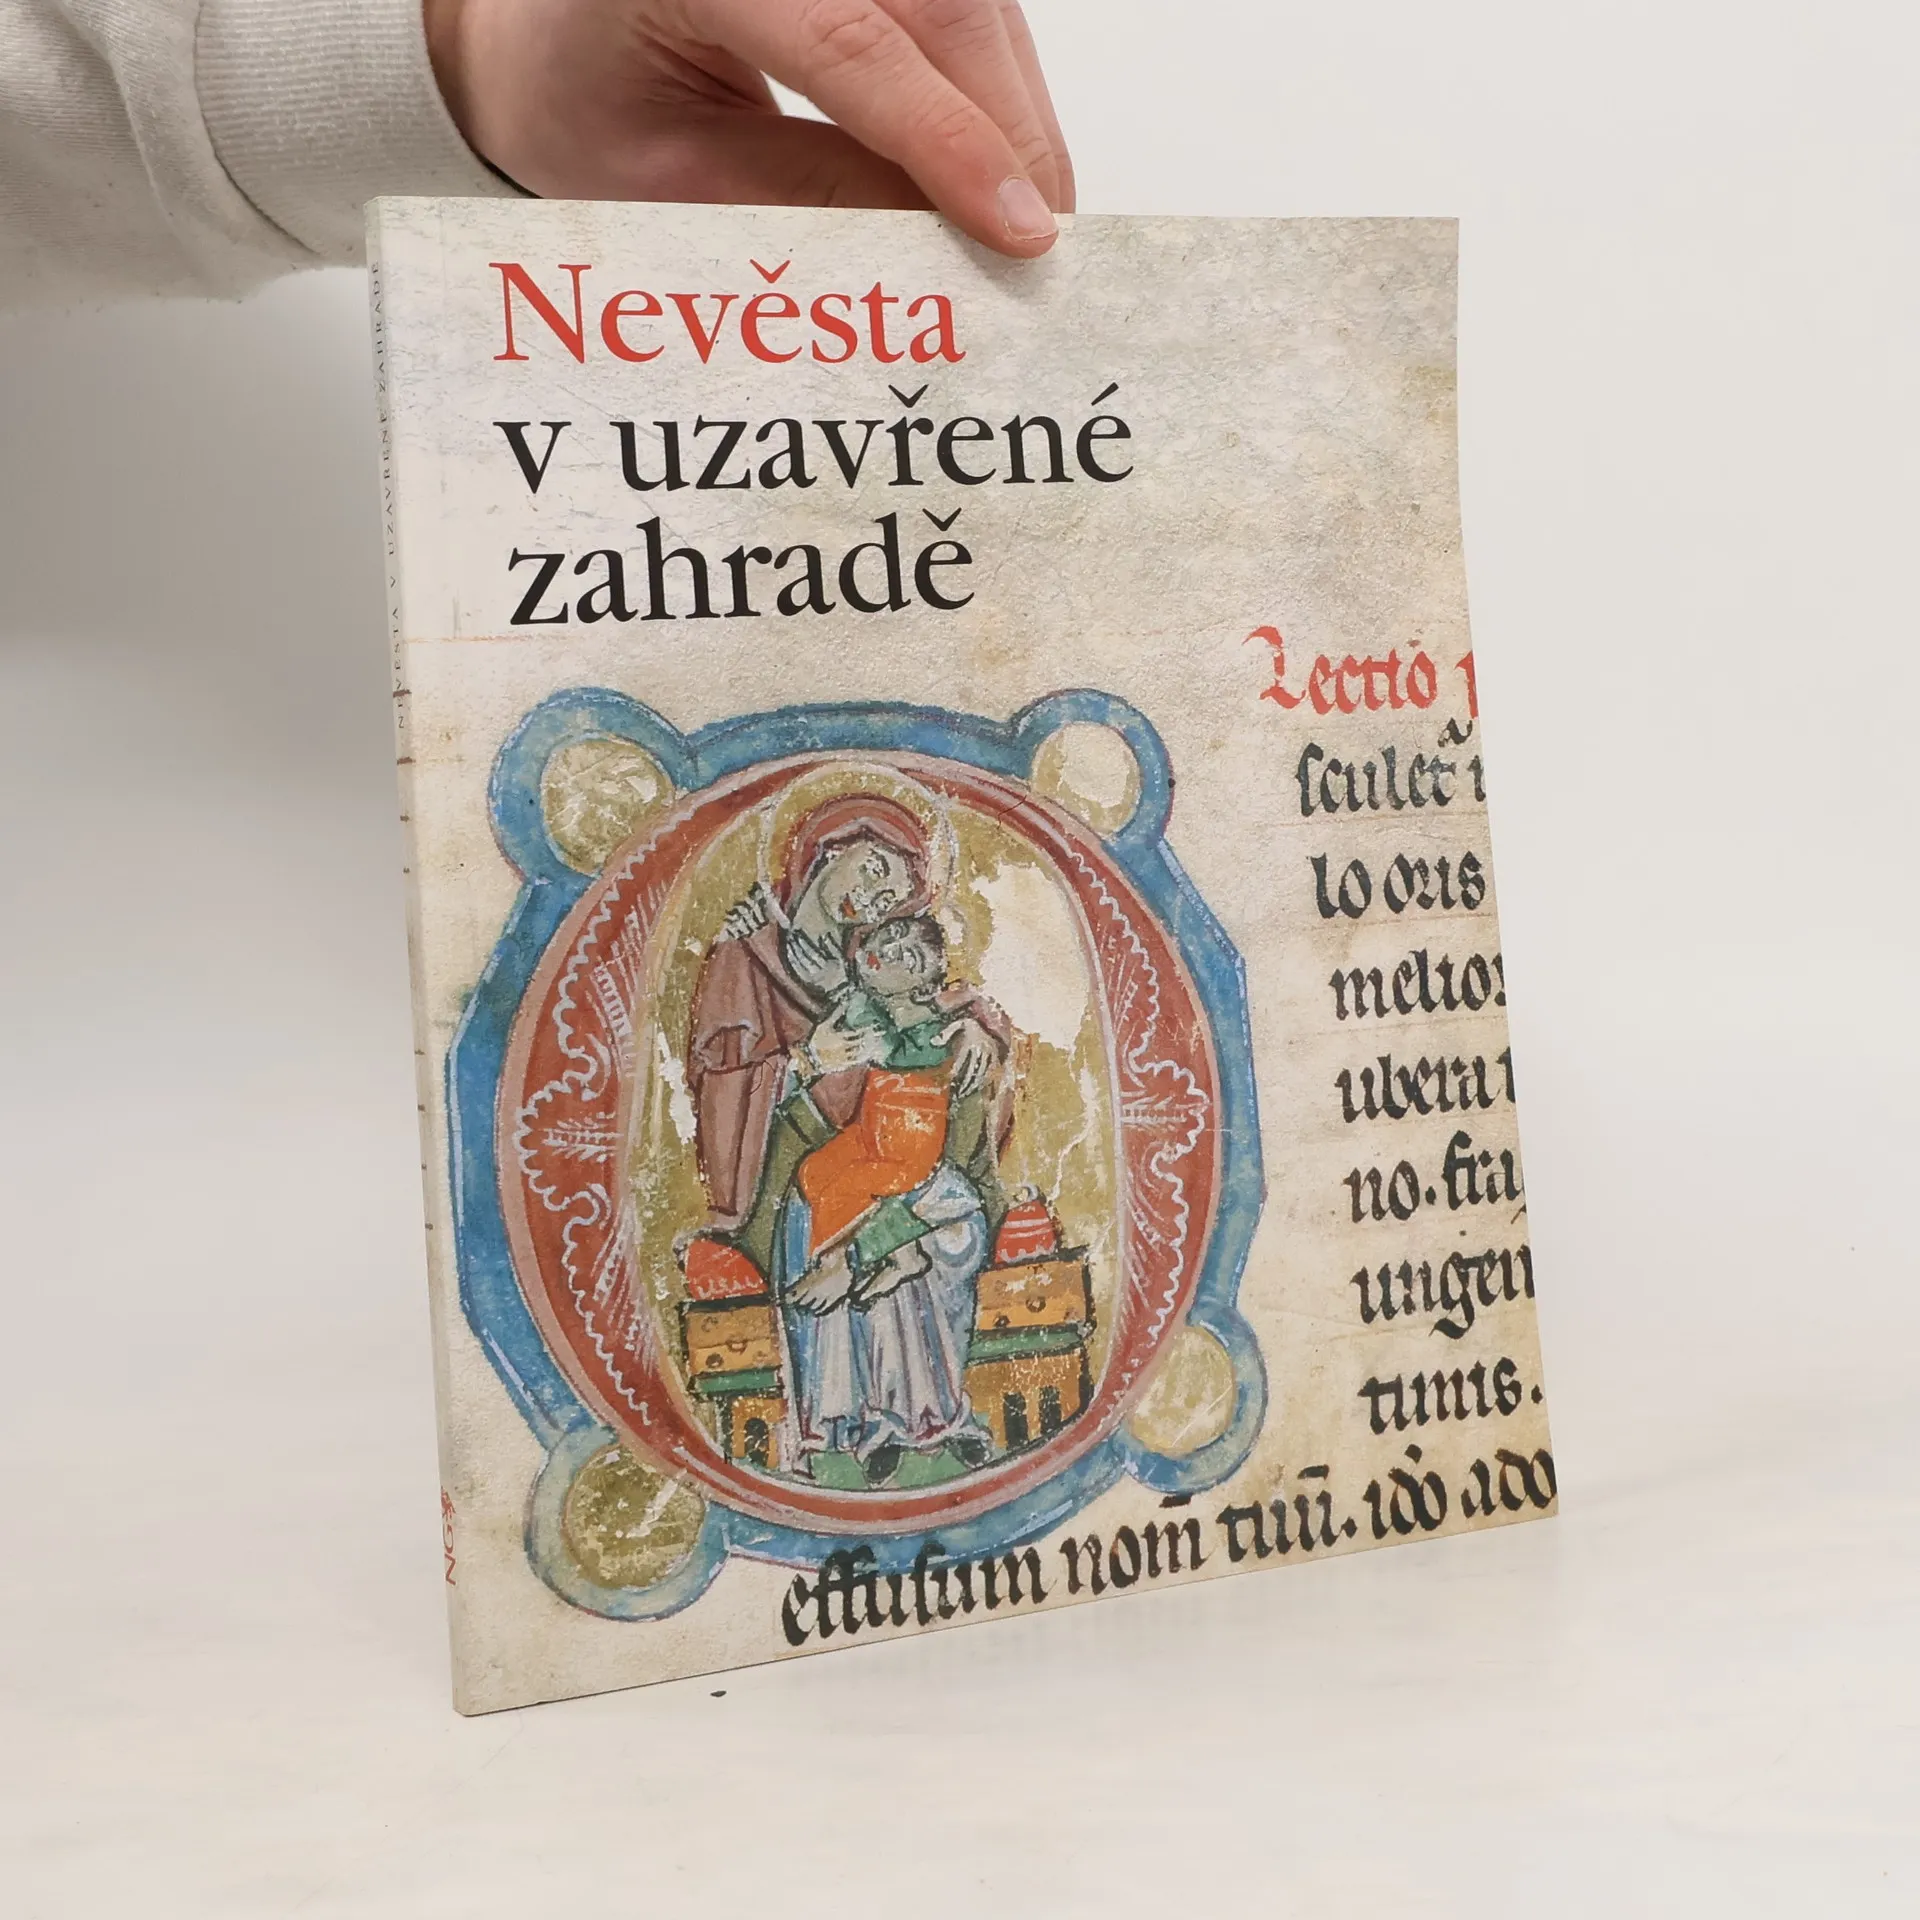 Nevěsta
v uzavřené
zahradě
Lectio
sculet͞
lo oris
melior
ubera
no. fra
ungen
tuniıs.
effusum nom̄ tuū. ido ado
NEVĚSTA V UZAVŘENÉ ZAHRADĚ